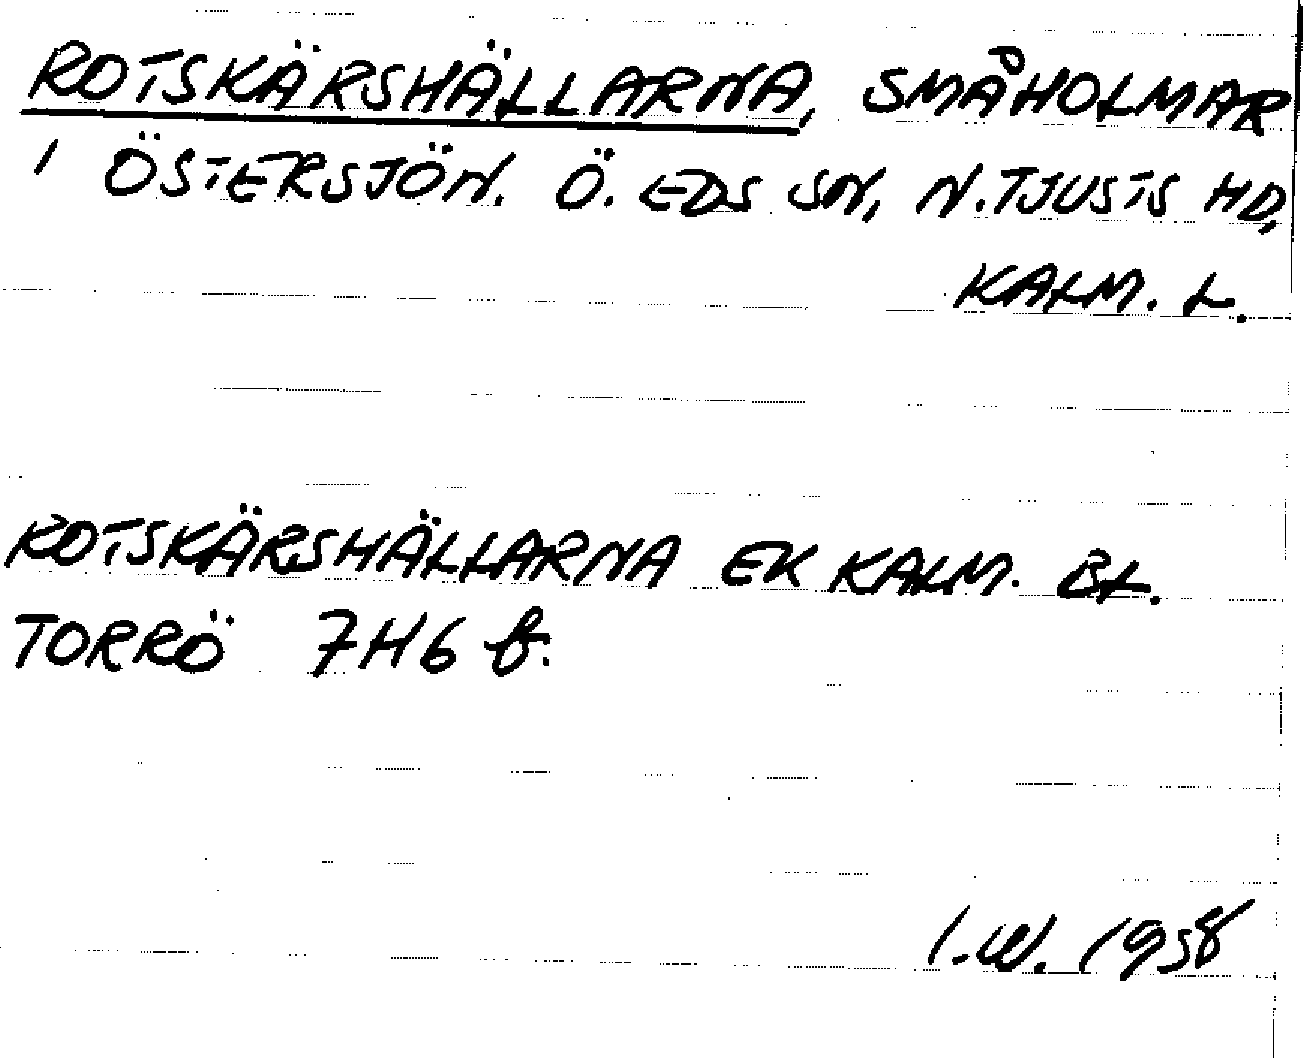 ROTSKÄRSHÄLLARNA, SMÅHOLMAR
I ÖSTERSJÖN. Ö. EDS SN, N. TJUSTS HD,
KALM. L.
ROTSKÄRSHÄLLARNA EK KALM. BL.
TORRÖ 7H6 f.
I.W. 1958